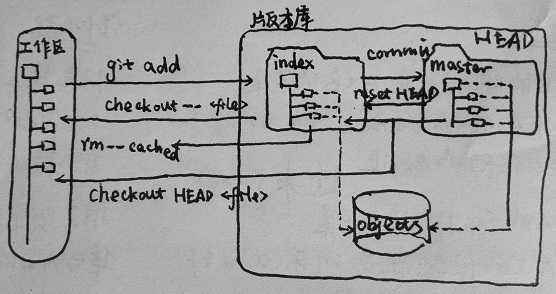 片版本库
HEAD
工作区
git add
index
commit
master
reset HEAD
checkout -- <file>
rm --cached
checkout HEAD <file>
objects